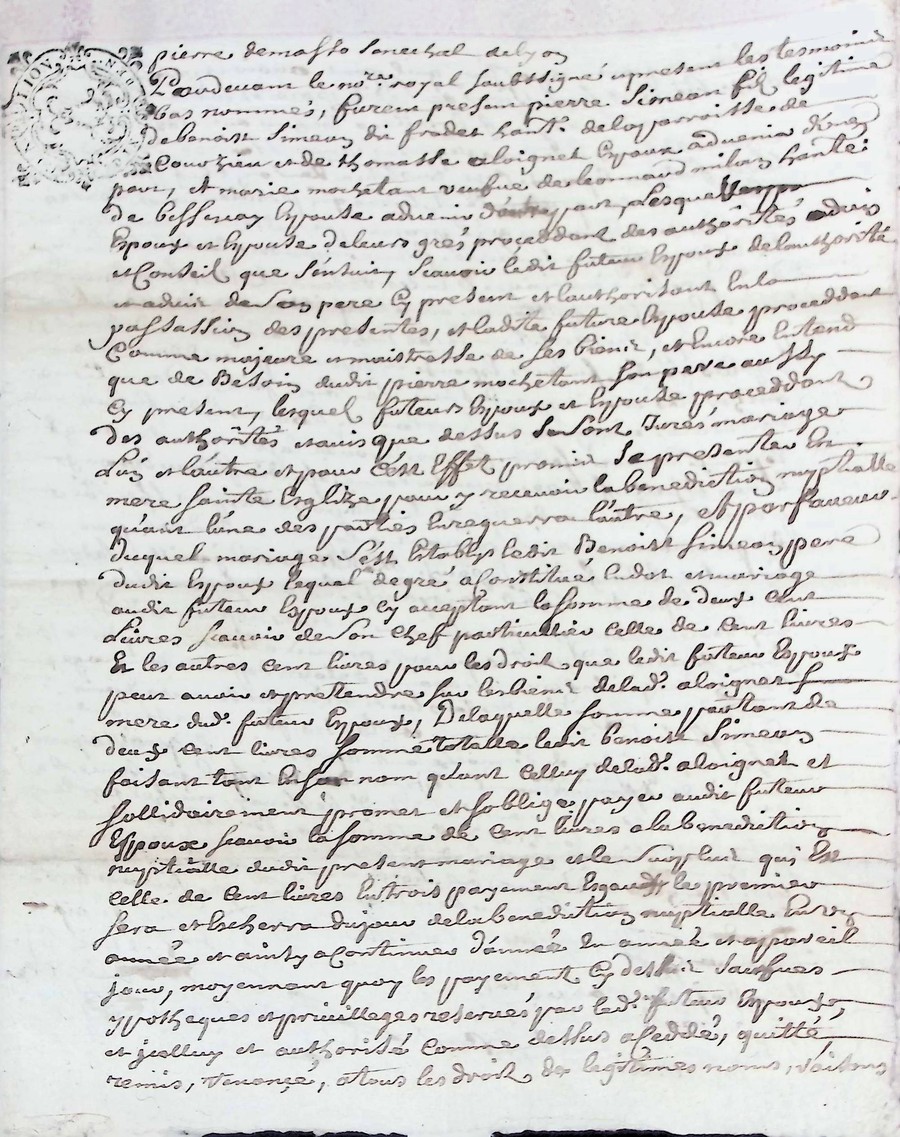 pierre demasso senechal delyon
Pardevant le nore. royal soubssigné et present les tesmoins
bas nommés, furent present pierre Simeon fils legitime
de benoist Simeon dit fradet hant. delaparroisse de
Courzieu et de thomasse aloignet Espoux advenir d'une
part, et marie mochetant veufve de leonnard milan hante.
de bessenay Espouse advenir d'autre part, Lesquelles
Espoux et Espouse deleurs grés proceddant des authorités advis
et Conseil que sénsuit, scavoir ledit futeur Espoux delauthorité
et advis de Son pere Cy present et lauthorisant En la
passassion des presentes, et ladite future Espouse proceddant
Comme majeure et maistresse de Ses biens, et Encore Entend
que de Besoin dudit pierre mochetant Son pere aussy
Cy present, lesquel futeurs Espoux et Espouse proceddant
des authorités et avis que dessus Se sont Jurés mariage
L'un et lautre et pour C'est Effet promis Se presenter En
mere Sainte Esglize pour y recevoir la benediction nuptialle
quant l'une des parties En requerra lautre, et parfaveur
duquel mariage S'est Estably ledit Benoist Simeon pere
dudit Espoux lequel de gré a Constitué Endot et mariage
audit futeur Espoux Cy acceptant la Somme de deux Cent
Livres scavoir de Son Chef particullier Celle de Cent livres
Et les autres Cent livres pour les droit que ledit futeur Espoux
peut avoir et pretendre Sur les biens delad. aloignet Sa
mere dud. futeur Espoux, Delaquelle Somme partant de
deux Cent livres Somme totelle ledit benoist Simeon
faisant tant En Son nom quant Celluy delad. aloignet et
Sollidairement promet et Soblige payer audit futeur
Espoux scavoir la Somme de Cent livres a la benediction
nuptialle dudit present mariage et le Surplus qui Est
Celle de Cent livres En trois payement Esgaux le premier
Sera et Escherra du jour dela benediction nuptialle En un
année et ainsy a Continuer d'année En année et a pareil
jour, moyennant quoy les payement Cy dessus Saufues
ypotheques et privilleges reservés par led. futeur Espoux,
et jcelluy et authorisé Comme dessus a Ceddé, quitté,
remis, renoncé, a tous les droit de legitimes noms, raisons